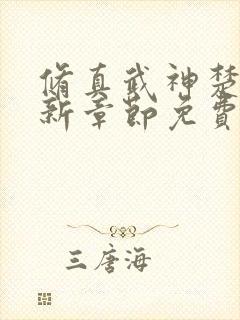 脩真武神楚
新章節免費
三唐海